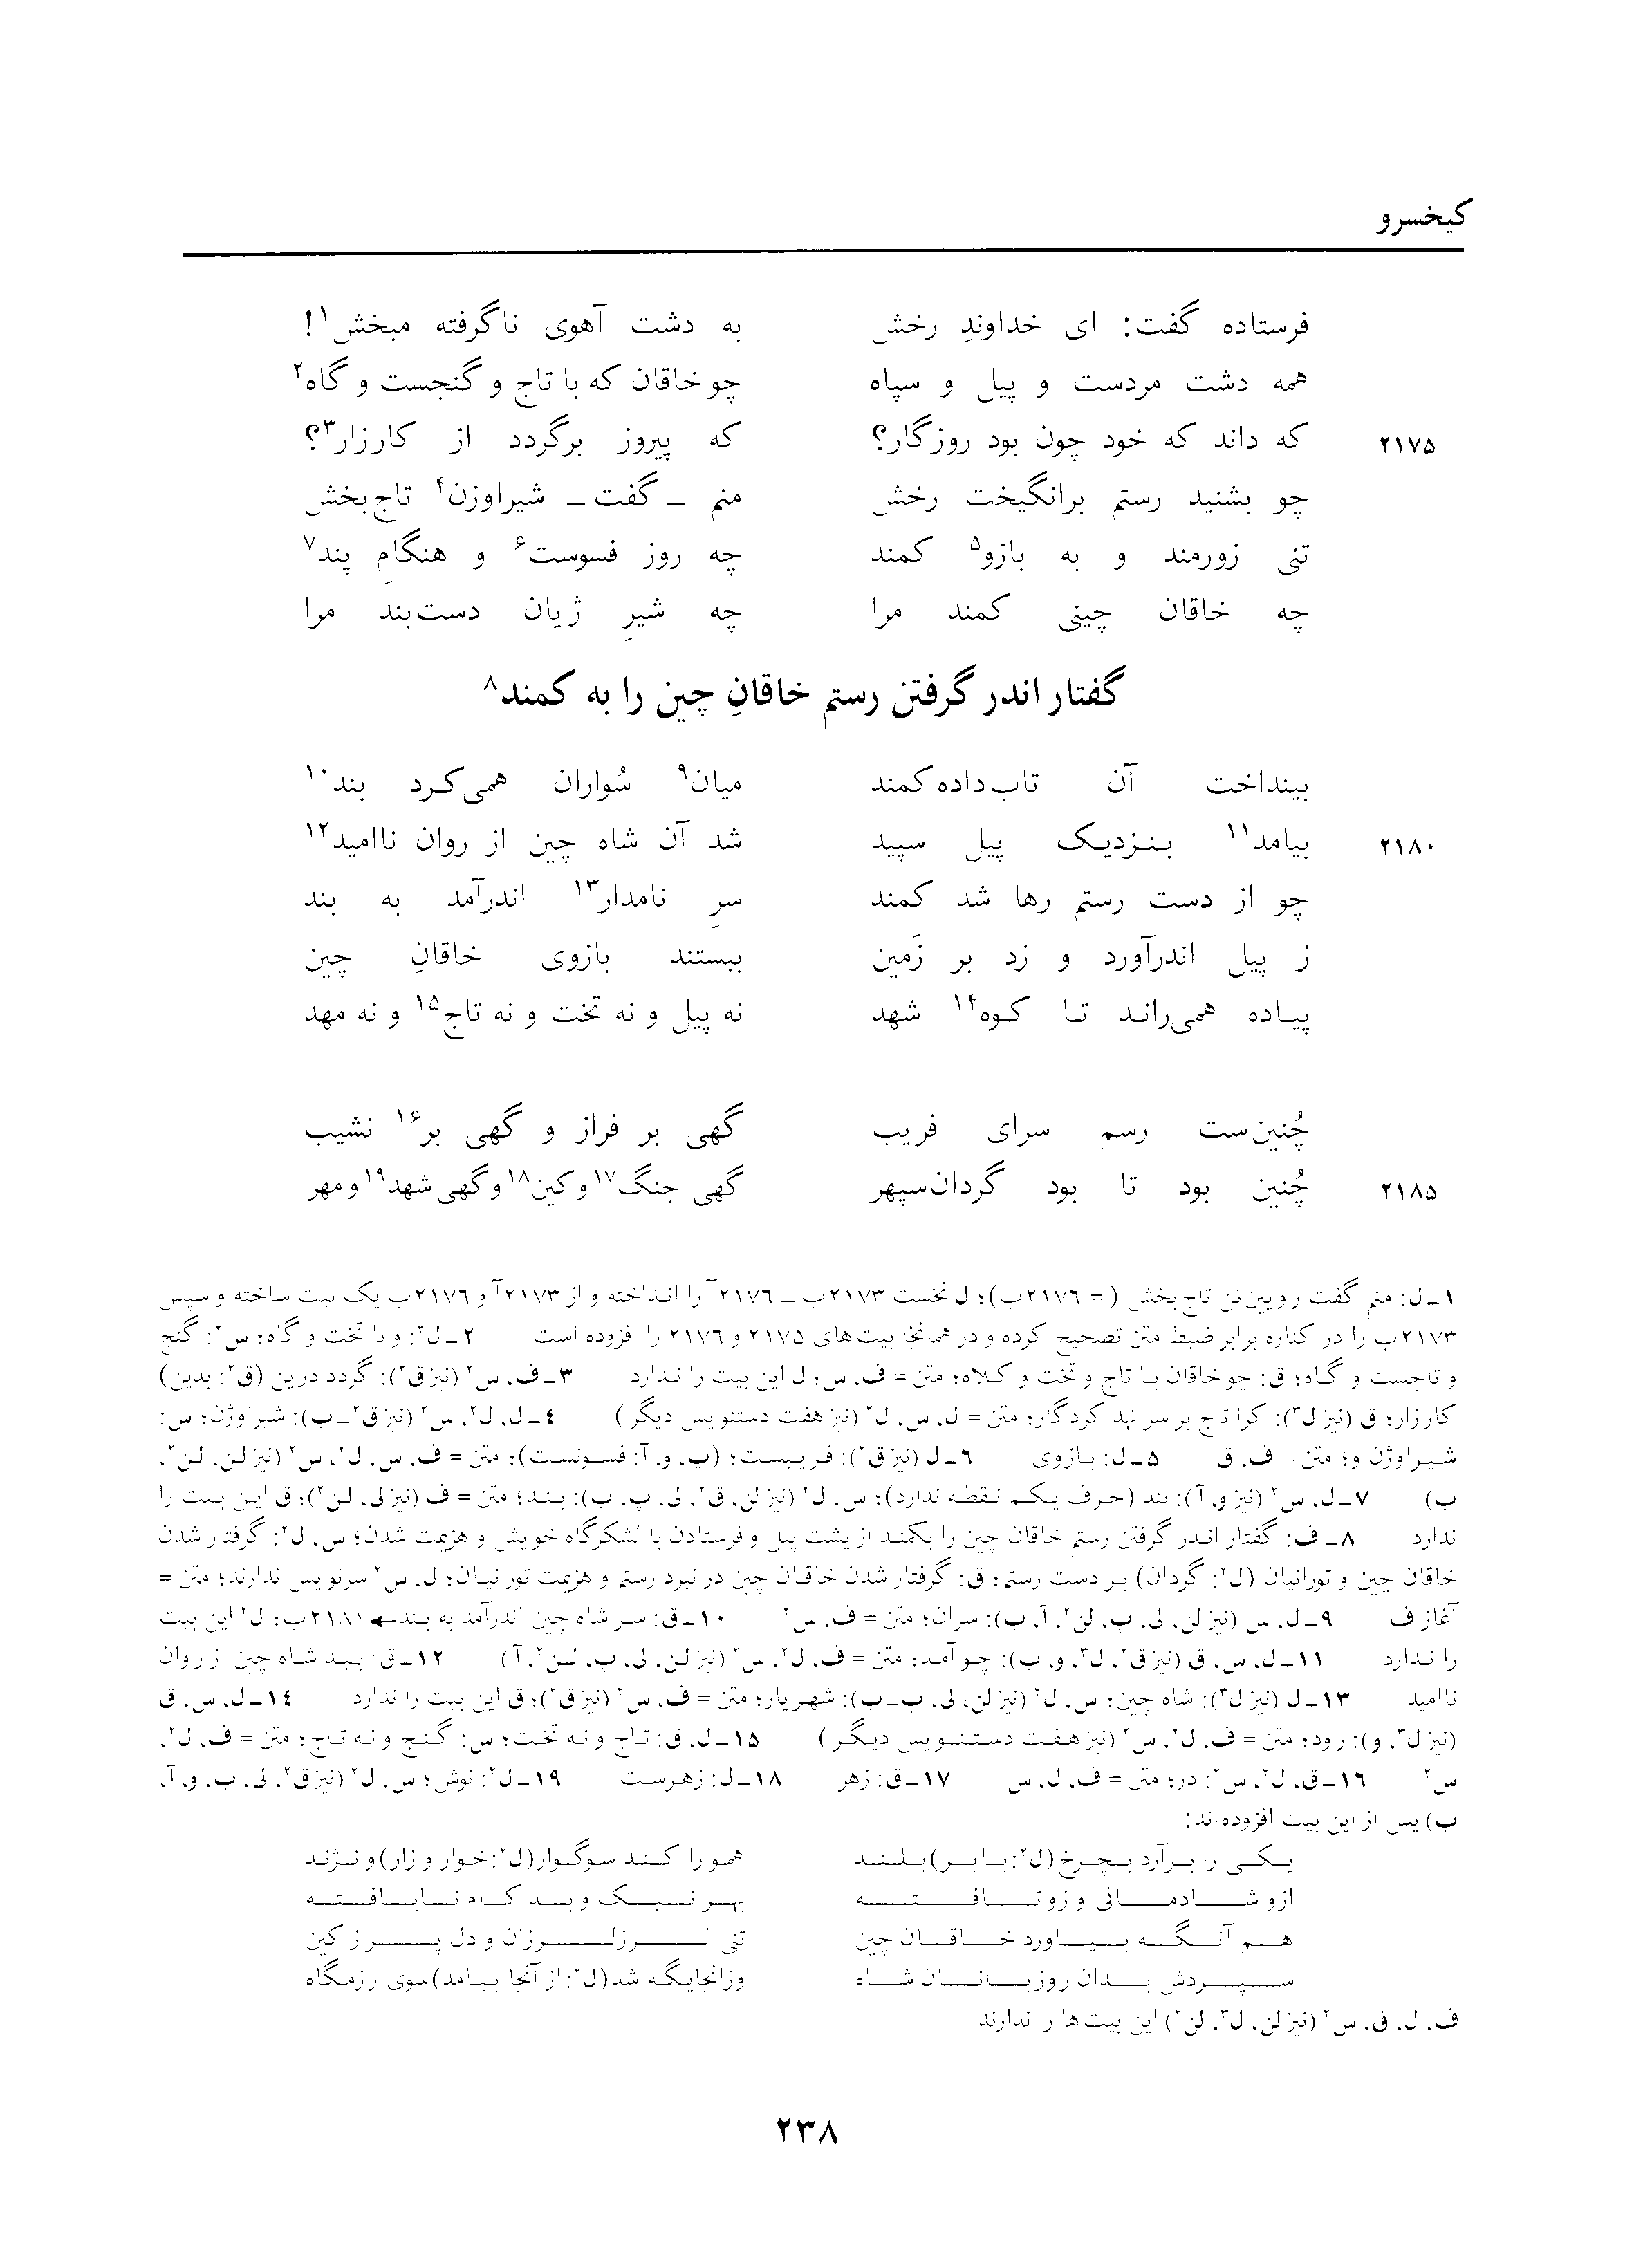 کیخسرو
فرستاده گفت: ای خداوندِ رخش به دشت آهوی ناگرفته مبخش۱!
همه دشت مردست و پیل و سپاه چو خاقان که با تاج و گنجست و گاه۲
۲۱۷۵ که داند که خود چون بود روزگار؟ که پیروز برگردد از کارزار۳؟
چو بشنید رستم برانگیخت رخش منم ـ گفت ـ شیراوزن۴ تاج‌بخش
تنی زورمند و به بازو۵ کمند چه روز فسوست۶ و هنگامِ پند۷
چه خاقان چینی کمند مرا چه شیرِ ژیان دست‌بند مرا
گفتار اندر گرفتن رستم خاقانِ چین را به کمند۸
بینداخت آن تاب‌داده کمند میان۹ سُواران همی‌کرد بند۱۰
۲۱۸۰ بیامد۱۱ بنزدیک پیل سپید شد آن شاه چین از روان ناامید۱۲
چو از دست رستم رها شد کمند سرِ نامدار۱۳ اندرآمد به بند
ز پیل اندرآورد و زد بر زَمین ببستند بازوی خاقانِ چین
پیاده همی‌راند تا کوه۱۴ شهد نه پیل و نه تخت و نه تاج۱۵ و نه مهد
چُنین‌ست رسم سرای فریب گهی بر فراز و گهی بر۱۶ نشیب
۲۱۸۵ چُنین بود تا بود گردان‌سپهر گهی جنگ۱۷ و کین۱۸ و گهی شهد۱۹ و مهر
۱ـ ل: منم گفت رویین‌تن تاج‌بخش (= ۲۱۷۶ب)؛ ل نخست ۲۱۷۳ب ـ ۲۱۷۶آ را انداخته و از ۲۱۷۳آ و ۲۱۷۶ب یک بیت ساخته و سپس
۲۱۷۳ب را در کناره برابر ضبط متن تصحیح کرده و در همانجا بیت‌های ۲۱۷۵ و ۲۱۷۶ را افزوده است ۲ـ ل۲: و با تخت و گاه؛ س۲: گنج
و تاجست و گاه؛ ق: چو خاقان با تاج و تخت و کلاه؛ متن = ف، س؛ ل این بیت را ندارد ۳ـ ف، س۲ (نیز ق۲): گردد درین (ق۲: بدین)
کارزار؛ ق (نیز ل۳): کرا تاج بر سر نهد کردگار؛ متن = ل، س، ل۲ (نیز هفت دستنویس دیگر) ۴ـ ل، ل۲، س۲ (نیز ق۲ـ ب): شیراوژن؛ س:
شیراوژن و؛ متن = ف، ق ۵ـ ل: بازوی ۶ـ ل (نیز ق۲): فریبست؛ (پ، و، آ: فسونست)؛ متن = ف، س، ل۲، س۲ (نیز لن، لن۲،
ب) ۷ـ ل، س۲ (نیز و، آ): بند (حرف یکم نقطه ندارد)؛ س، ل۲ (نیز لن، ق۲، لی، پ، ب): بند؛ متن = ف (نیز لی، لن۲)؛ ق این بیت را
ندارد ۸ـ ف: گفتار اندر گرفتن رستم خاقان چین را بکمند از پشت پیل و فرستادن با لشکرگاه خویش و هزیمت شدن؛ س، ل۲: گرفتار شدن
خاقان چین و تورانیان (ل۲: گردان) بر دست رستم؛ ق: گرفتار شدن خاقان چین در نبرد رستم و هزیمت تورانیان؛ ل، س۲ سرنویس ندارند؛ متن =
آغاز ف ۹ـ ل، س (نیز لن، لی، پ، لن۲، آ، ب): سران؛ متن = ف، س۲ ۱۰ـ ق: سر شاه چین اندرآمد به بند ← ۲۱۸۱ب؛ ل۲ این بیت
را ندارد ۱۱ـ ل، س، ق (نیز ق۲، ل۳، و، ب): چو آمد؛ متن = ف، ل۲، س۲ (نیز لن، لی، پ، لن۲، آ) ۱۲ـ ق: ببد شاه چین از روان
ناامید ۱۳ـ ل (نیز ل۳): شاه چین؛ س، ل۲ (نیز لن، لی، پ ـ ب): شهریار؛ متن = ف، س۲ (نیز ق۲)؛ ق این بیت را ندارد ۱۴ـ ل، س، ق
(نیز ل۳، و): رود؛ متن = ف، ل۲، س۲ (نیز هفت دستنویس دیگر) ۱۵ـ ل، ق: تاج و نه تخت؛ س: گنج و نه تاج؛ متن = ف، ل۲،
س۲ ۱۶ـ ق، ل۲، س۲: در؛ متن = ف، ل، س ۱۷ـ ق: زهر ۱۸ـ ل: زهرست ۱۹ـ ل۲: نوش؛ س، ل۲ (نیز ق۲، لی، پ، و، آ،
ب) پس از این بیت افزوده‌اند:
یکی را برآرد بچرخ (ل۲: با بر) بلند همو را کند سوگوار (ل۲: خوار و زار) و نژند
ازو شادمانی و زو تافته بهر نیک و بد کاه نایافته
هم آنگه بیاورد خاقان چین تنی لرزلرزان و دل پر ز کین
سپردش بدان روزبانان شاه وزانجایگه شد (ل۲: از آنجا بیامد) سوی رزمگاه
ف، ل، ق، س۲ (نیز لن، ل۳، لن۲) این بیت‌ها را ندارند
۲۳۸